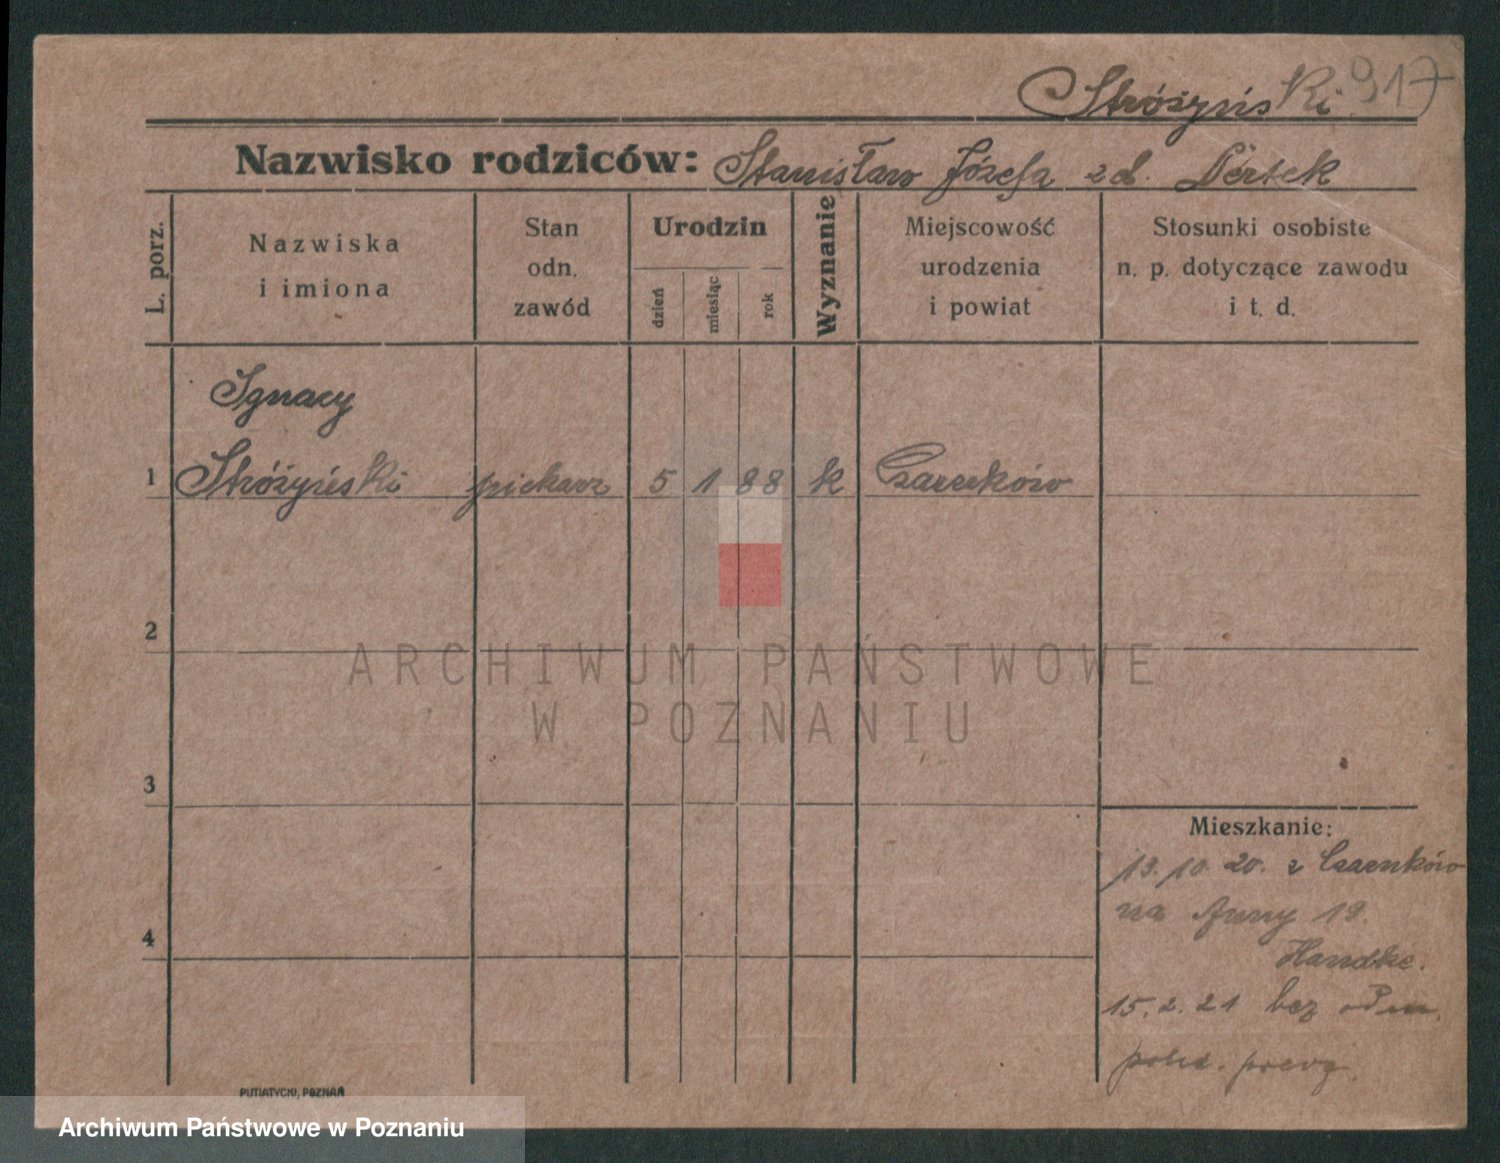 Stróżyński 917
Nazwisko rodziców: Stanisław Józefa zd.
L. porz.
Nazwiska
i imiona
Stan
odn.
zawód
Urodzin
dzień
miesiąc
rok
Wyznanie
Miejscowość
urodzenia
i powiat
Stosunki osobiste
n. p. dotyczące zawodu
i t. d.
Ignacy
1 Stróżyński piekarz 5 1 88 k Czarnków
2
3
4
Mieszkanie:
13.10.20. z Czarnków
na 19.
Handke.
15.2.21 bez
PUTIATYCKI, POZNAŃ
ARCHIWUM PAŃSTWOWE
W POZNANIU
Archiwum Państwowe w Poznaniu